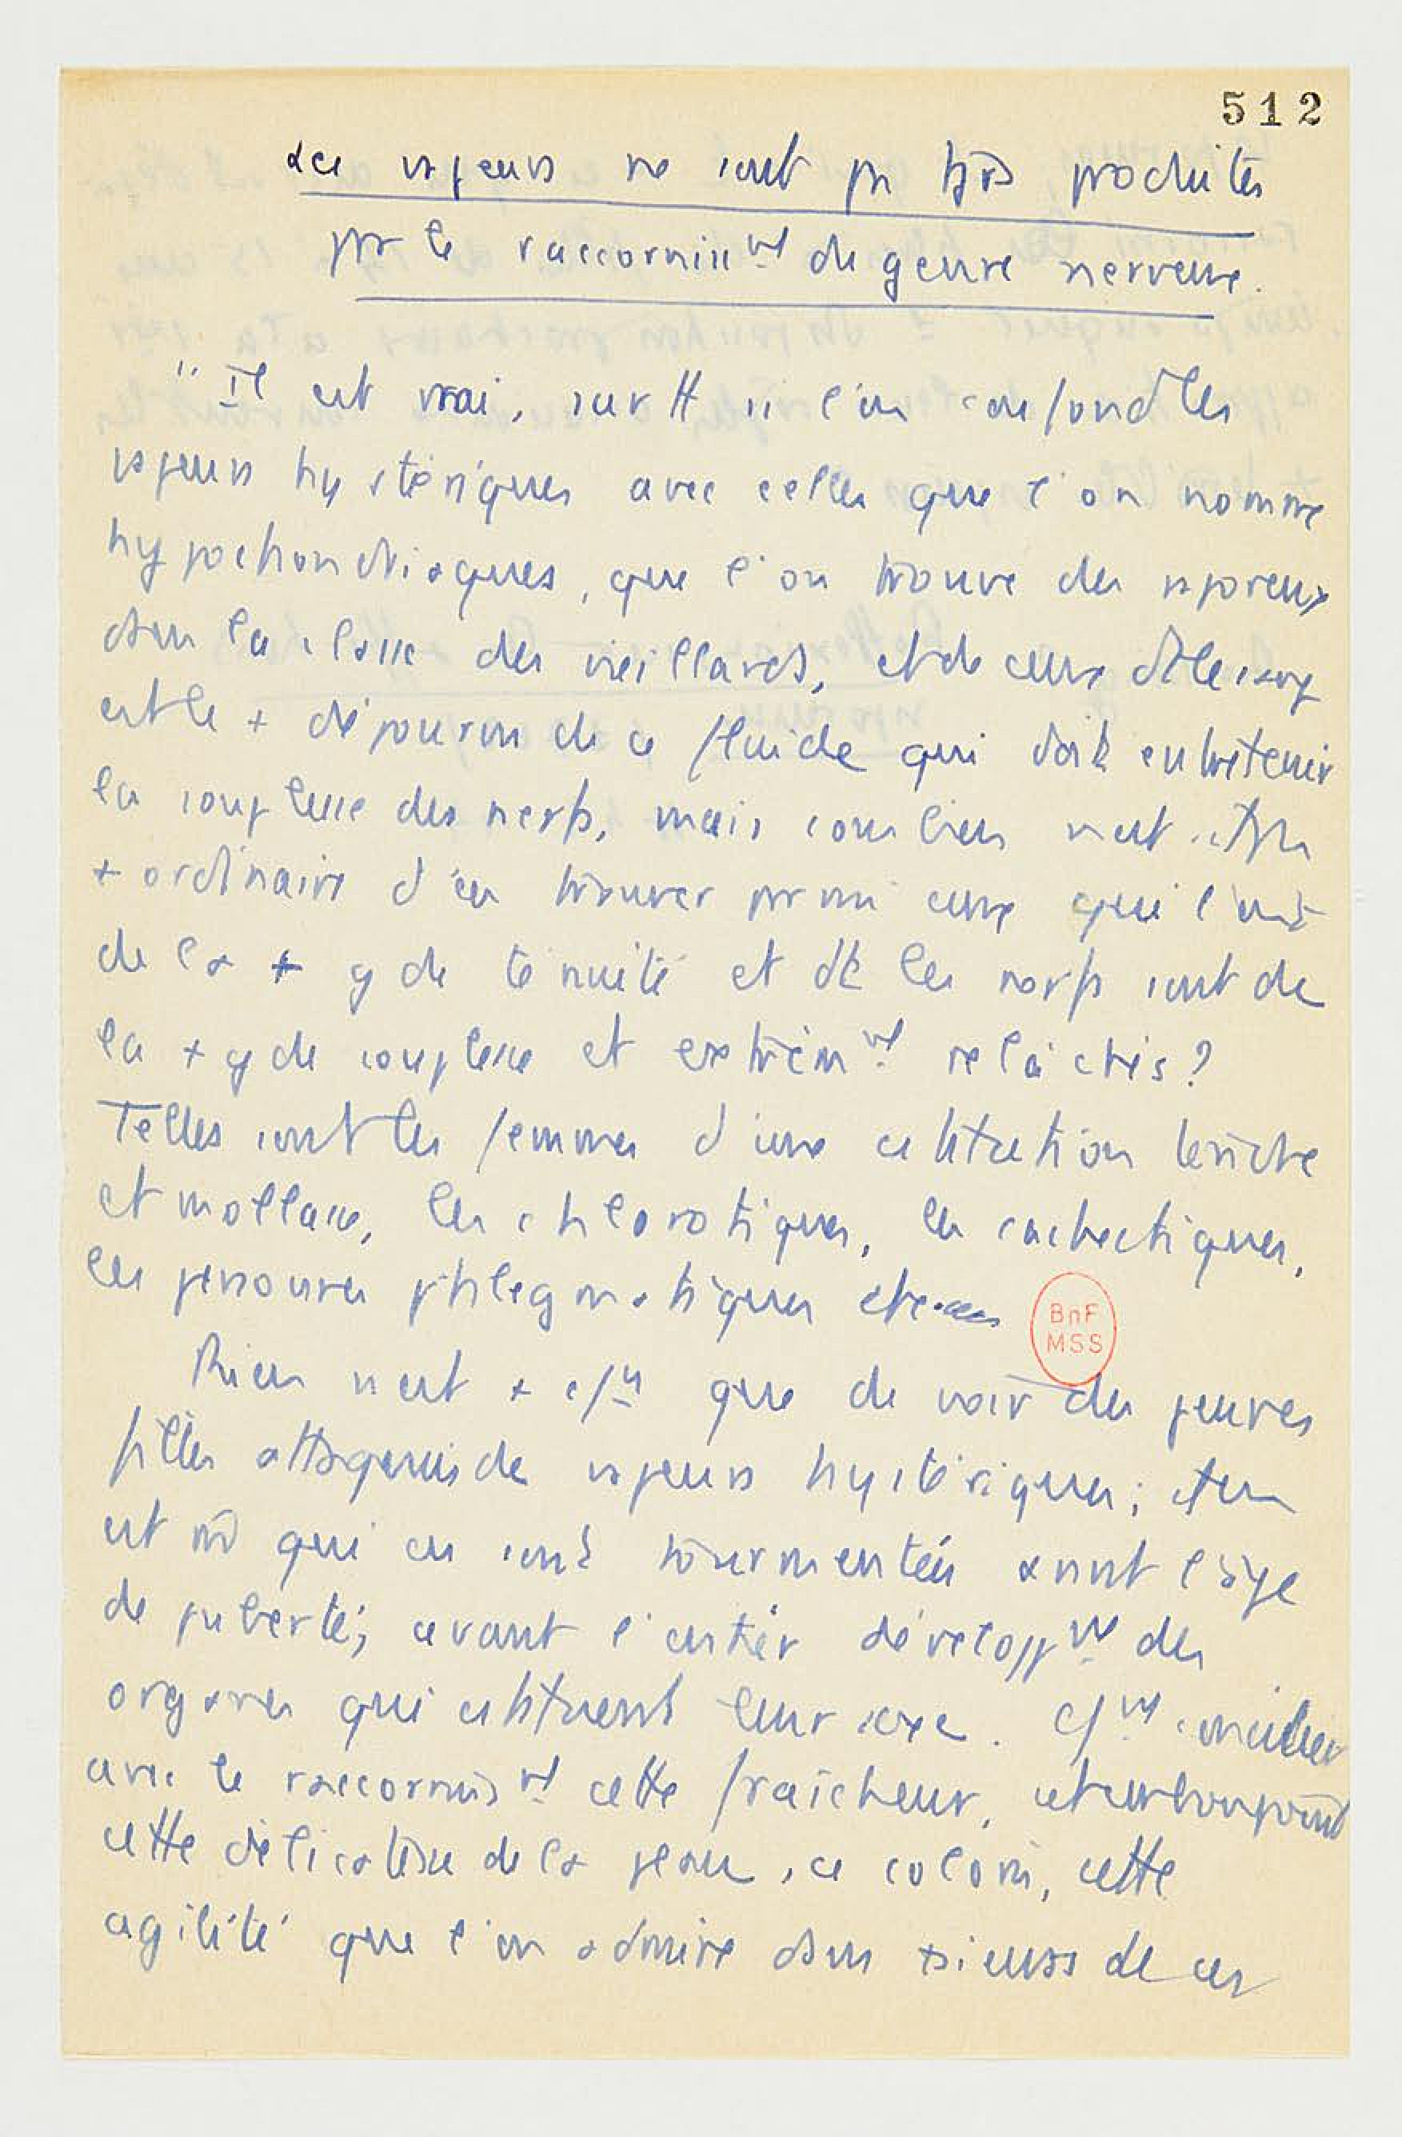 512
Les vapeurs ne sont pas tjrs produites
par le raccorniss^nt du genre nerveux.
"Il est vrai, surtt si l'on confond les
vapeurs hystériques avec celles que l'on nomme
hypochondriaques, que l'on trouve des vaporeux
dans la classe des vieillards, et de ceux dt le sang
est le + dépourvu de ce fluide qui doit entretenir
la souplesse des nerfs, mais combien n'est-il pas
+ ordinaire d'en trouver parmi ceux qui l'ont
de la + gde ténuité et dt les nerfs sont de
la + gde souplesse et extrêm^nt relâchés?
Telles sont les femmes d'une cstitution tendre
et mollasse, les chlorotiques, les cachectiques,
les personnes phlegmatiques etc
Rien n'est + c/^n que de voir des jeunes
filles attaquées de vapeurs hystériques; il en
est m̂ qui en sont tourmentées avant l'âge
de puberté; avant l'entier développ^nt des
organes qui cstituent leur sexe. C/^nt concilier
avec le raccorniss^nt cette fraîcheur, cet embonpoint
cette délicatesse de la peau, ce coloris, cette
agilité que l'on admire dans +sieurs de ces